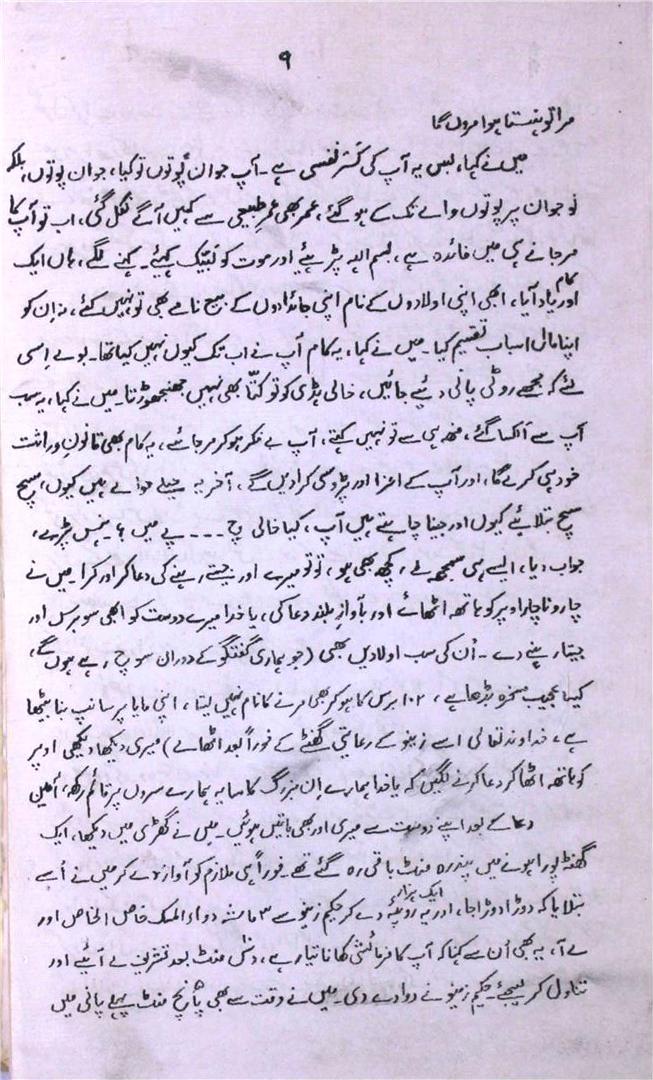 ۹
مرا تو ہنستا ہوا مروں گا
میں نے کہا، بس یہ آپ کی کسرِ نفسی ہے۔ آپ جوان پوتوں تو کیا، جوان پوتوں، بلکہ
نوجوان پر پوتوں والے تک کے ہو گئے، عمر بھی عمرِ طبیعی سے کہیں آگے نکل گئی، اب تو آپ کا
مر جانے ہی میں فائدہ ہے، بسم اللہ پڑہئیے اور موت کو لبّیک کہئے۔ کہنے لگے، ہاں ایک
کام اور یاد آیا، ابھی اپنی اولادوں کے نام اپنی جائدادوں کے بیع نامے بھی تو نہیں کئے، نہ اِن کو
اپنا مال اسباب تقسیم کیا۔ میں نے کہا، یہ کام آپ نے اب تک کیوں نہیں کیا تھا۔ بولے اِسی
لئے کہ مجھے روٹی پانی دئیے جائیں، خالی ہڈی کو تو کتّا بھی نہیں جھنجھوڑتا۔ میں نے کہا، یہ سب
آپ سے آلکسا گئے، منھ ہی سے تو نہیں کہتے، آپ بے فکر ہو کر مر جائے، یہ کام بھی قانونِ وراثت
خود ہی کرے گا، اور آپ کے اعزا اور پڑوسی کرا دیں گے، آخر یہ حیلے حوالے ہیں کیوں، سچ
سچ بتلائیے کیوں اور جینا چاہتے ہیں آپ، کیا خالی پچ ۔۔۔ پے میں ؟ ہنس پڑے،
جواب دیا، ایسے ہی سمجھ لے، کچھ بھی ہو، تو تو میرے اور جیتے رہنے کی دعا کر اور کرا۔ میں نے
چار و ناچار اوپر کو ہاتھ اٹھائے اور بآوازِ بلند دعا کی، یا خدا میرے دوست کو ابھی سو برس اور
جیتا رہنے دے ۔ اُن کی سب اولادیں بھی (جو ہماری گفتگو کے دوران سوچ رہے ہوں گے،
کیسا عجیب مسخرہ بڈھا ہے، ۱۰۲ برس کا ہو کر بھی مرنے کا نام نہیں لیتا، اپنی مایا پر سانپ بنا بیٹھا
ہے، خداوند تعالی اسے زینو کے رعایتی گھنٹے کے فوراً بعد اٹھالے) میری دیکھا دیکھی اوپر
کو ہاتھ اٹھا کر دعا کرنے لگیں کہ یا خدا ہمارے اِن بزرگ کا سایہ ہمارے سروں پر قائم رکھ، آمین
دعا کے بعد اپنے دوست سے میری اور بھی باتیں ہوئیں۔ میں نے گھڑی میں دیکھا، ایک
گھنٹہ پورا ہونے میں پندرہ منٹ باقی رہ گئے تھے۔ فوراً ہی ملازم کو آواز دے کر میں نے اُسے
بتلایا کہ دوڑا دوڑا جا، اور یہ ایک ہزار روپئیہ دے کر حکیم زینو سے ۳ ماشہ دواء المسک خاص الخاص اور
لے آ، یہ بھی اُن سے کہنا کہ آپ کا فرمائشی کھانا تیار ہے، دس منٹ بعد تشریف لے آئیے اور
تناول کر لیجئے۔ حکیم زینو نے دوا دے دی۔ میں نے وقت سے بھی پانچ منٹ پہلے پانی میں